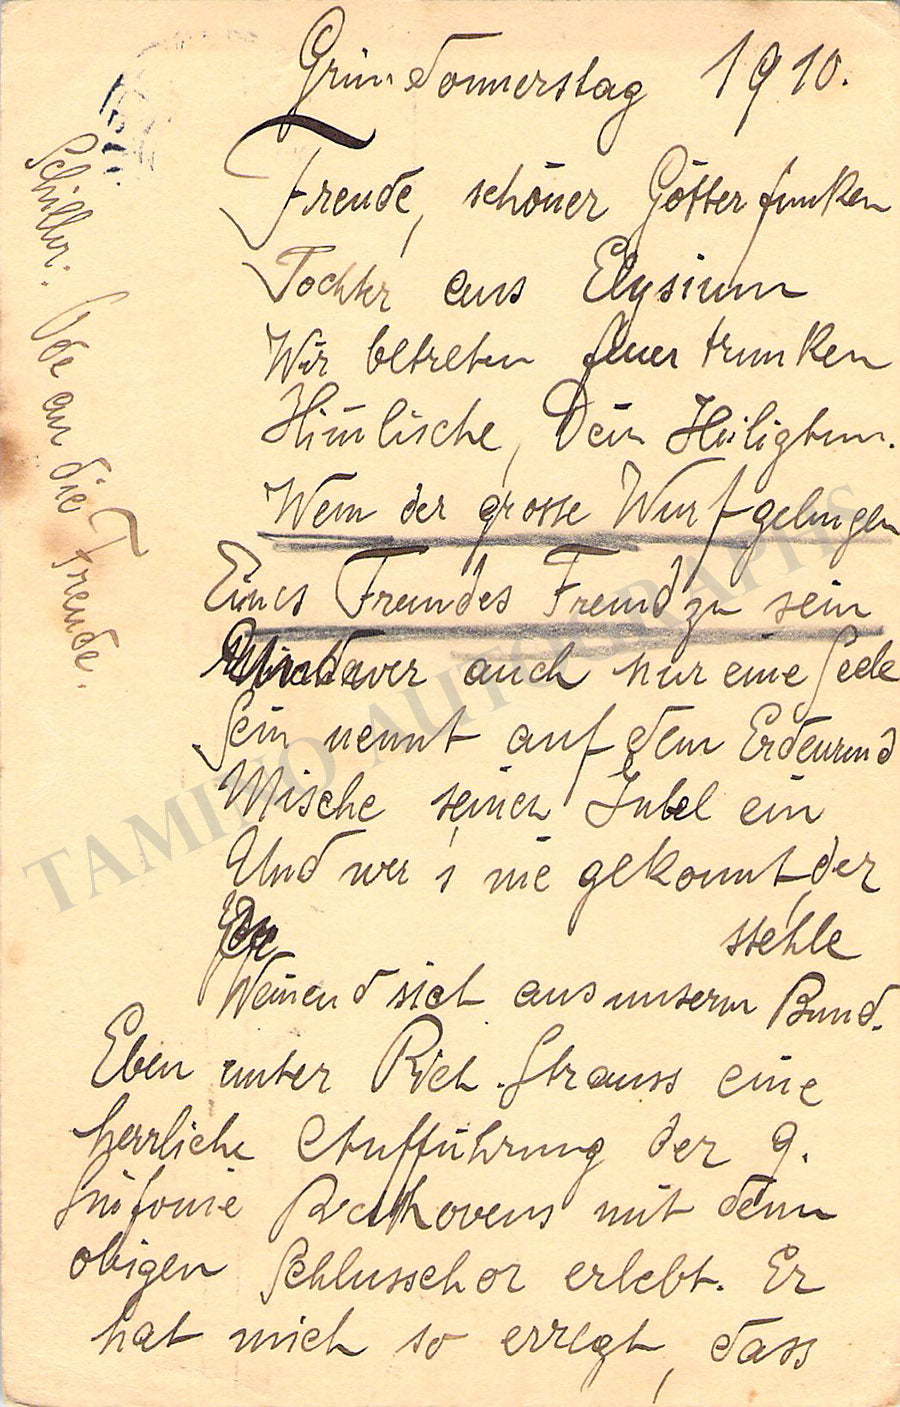 Gründonnerstag 1910.
Freude, schöner Götterfunken
Tochter aus Elysium
Wir betreten feuertrunken
Himlische, Dein Heiligtum.
Wem der grosse Wurf gelungen
Eines Freundes Freund zu sein
wer auch nur eine Seele
Sein nennt auf dem Erdenrund
Mische seinen Jubel ein
Und wer's nie gekonnt, der
stehle
Weinend sich aus unserm Bund.
Eben unter Rich. Strauss eine
herrliche Aufführung der 9.
Sinfonie Beethovens mit dem
obigen Schlusschor erlebt. Er
hat mich so erregt, dass
Schiller: Ode an die Freude.
TAMINO AUTOGRAPHS